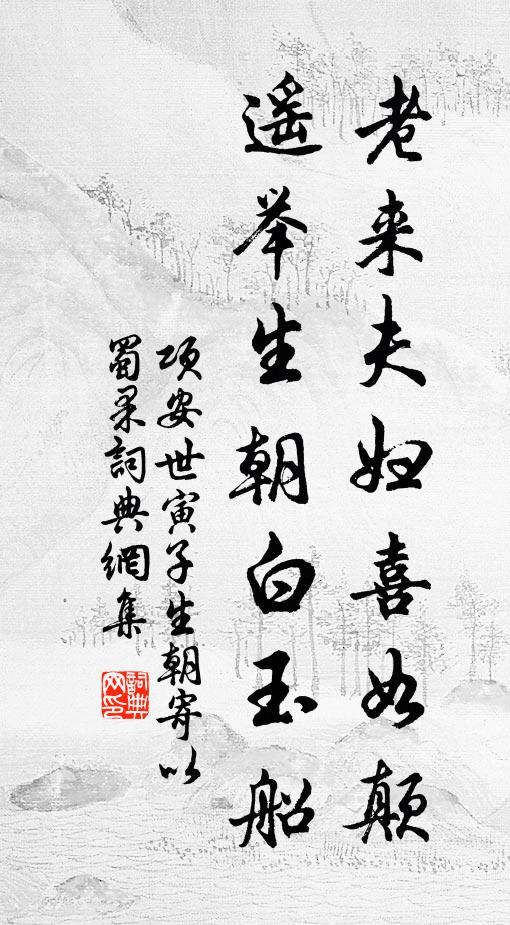 老来夫妇喜如颠
遥举生朝白玉船
项安世寅子生朝寄以
蜀果詞典網集
詞典
网印